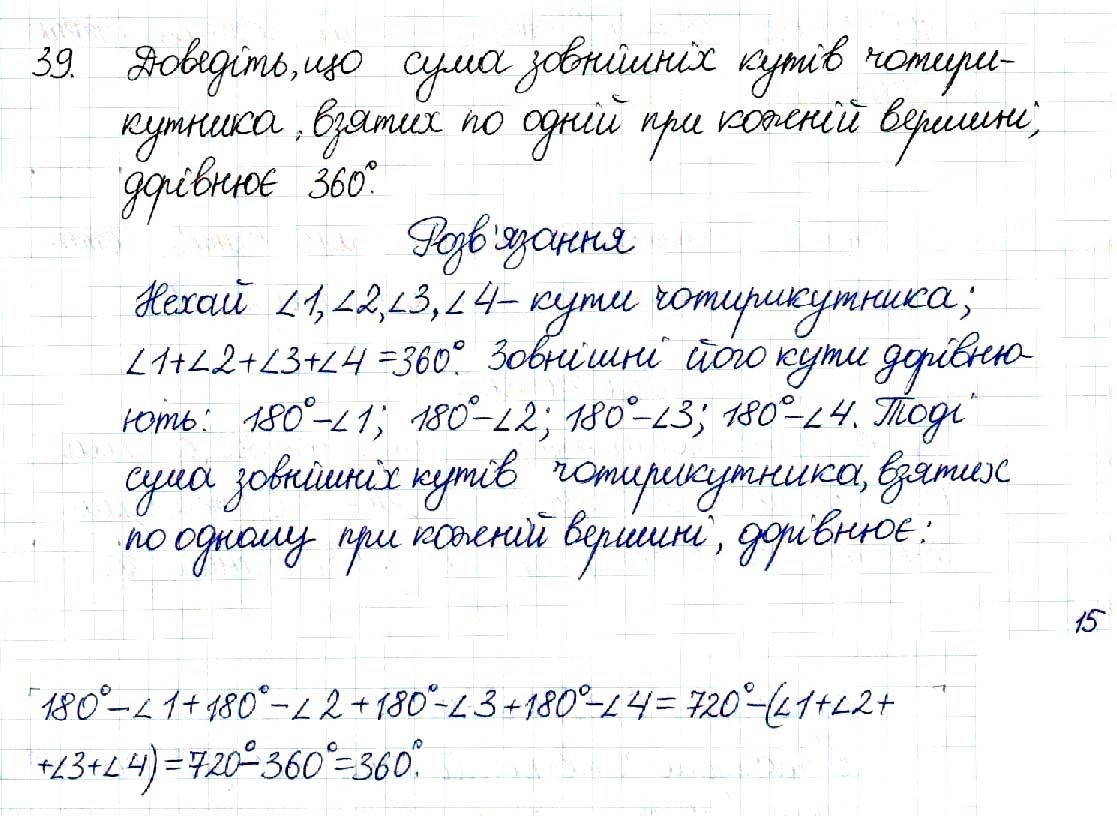 39. Доведіть, що сума зовнішніх кутів чотири-
кутника, взятих по одній при кожній вершині,
дорівнює 360°.
Розв'язання
Нехай ∠1, ∠2, ∠3, ∠4 – кути чотирикутника;
∠1+∠2+∠3+∠4=360°. Зовнішні його кути дорівню-
ють: 180°–∠1; 180°–∠2; 180°–∠3; 180°–∠4. Тоді
сума зовнішніх кутів чотирикутника, взятих
по одному при кожній вершині, дорівнює:
15
180°–∠1+180°–∠2+180°–∠3+180°–∠4=720°–(∠1+∠2+
+∠3+∠4)=720°–360°=360°.